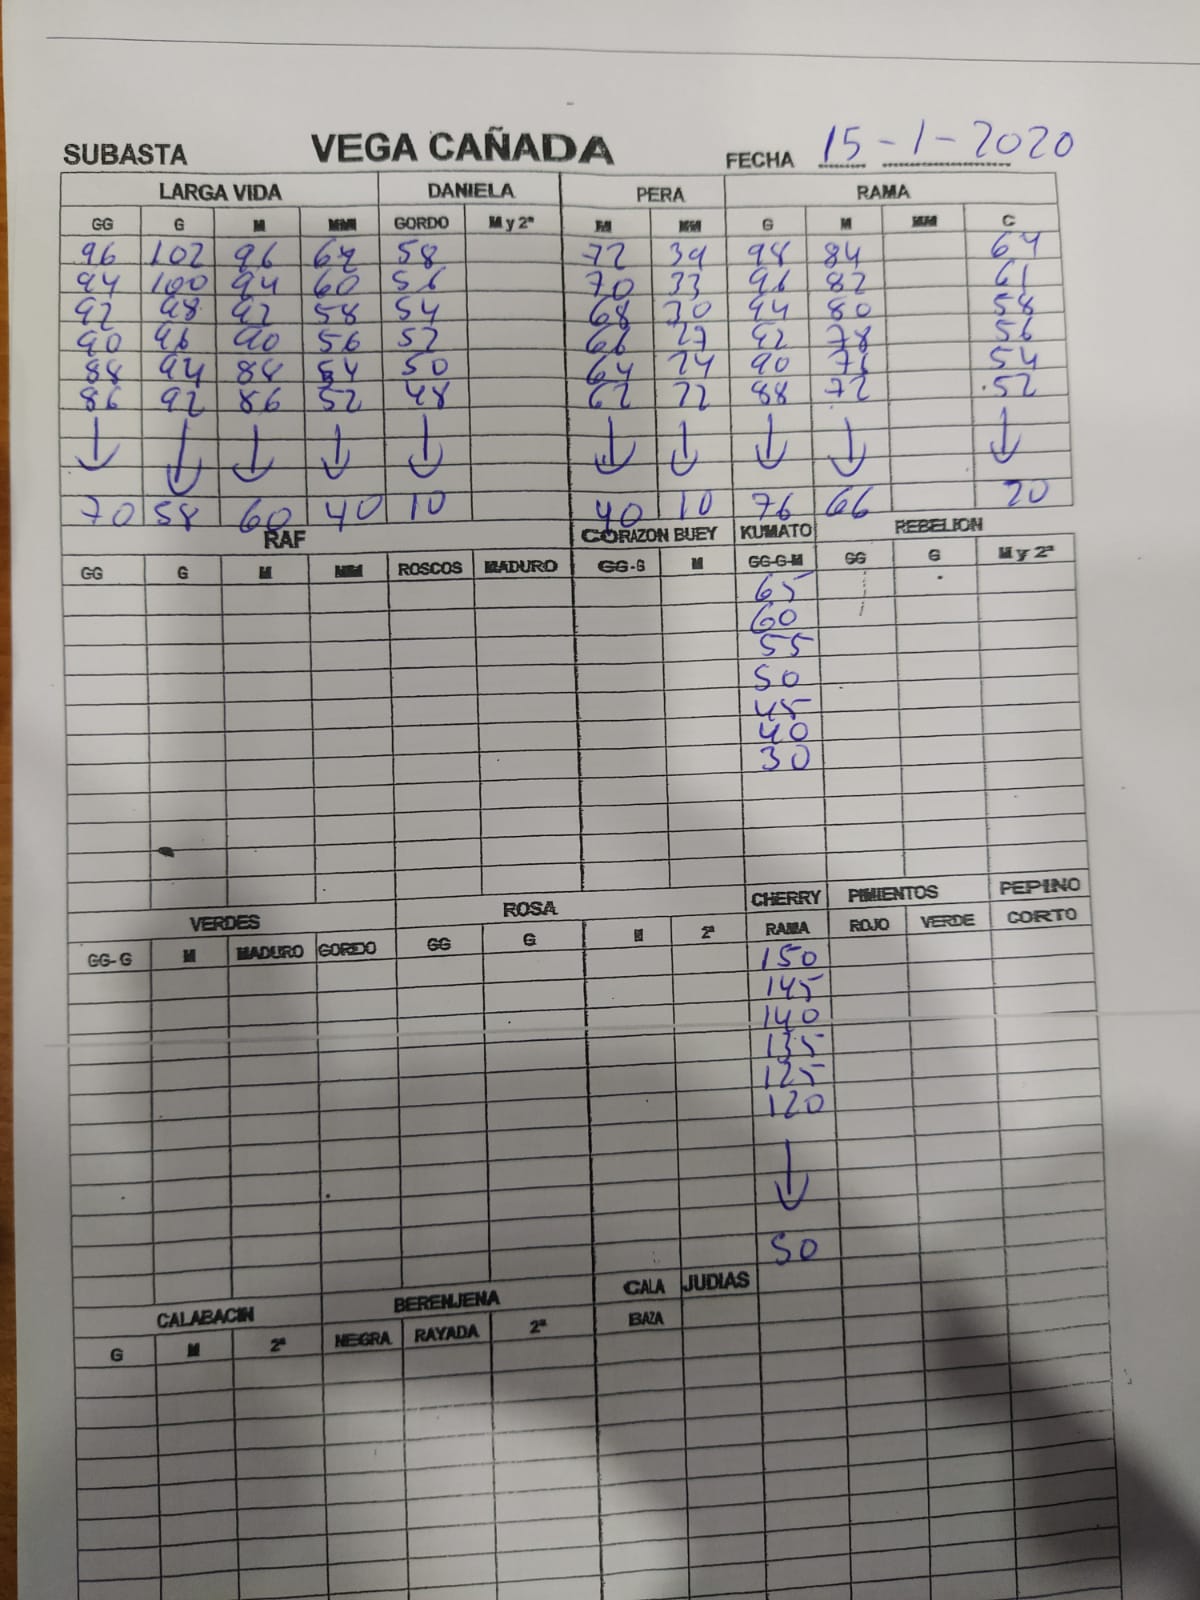 SUBASTA VEGA CAÑADA FECHA 15-1-2020
LARGA VIDA DANIELA PERA RAMA
GG G M MM GORDO M y 2ª M MM G M MM C
96 102 96 64 58 72 39 98 84 64
94 100 94 60 56 70 33 96 82 61
92 98 92 58 54 68 30 94 80 58
90 96 90 56 52 66 27 92 78 56
88 94 88 54 50 64 24 90 76 54
86 92 86 52 48 62 22 88 72 52
↓ ↓ ↓ ↓ ↓ ↓ ↓ ↓ ↓ ↓
70 58 60 40 10 40 10 76 66 20
RAF CORAZON BUEY KUMATO REBELION
GG G M MM ROSCOS MADURO GG-G M GG-G-M GG G M y 2ª
65
60
55
50
45
40
30
VERDES ROSA CHERRY PIMIENTOS PEPINO
GG-G M MADURO GORDO GG G M 2ª RAMA ROJO VERDE CORTO
150
145
140
135
125
120
↓
50
CALABACIN BERENJENA CALA JUDIAS
G M 2ª NEGRA RAYADA 2ª BAZA